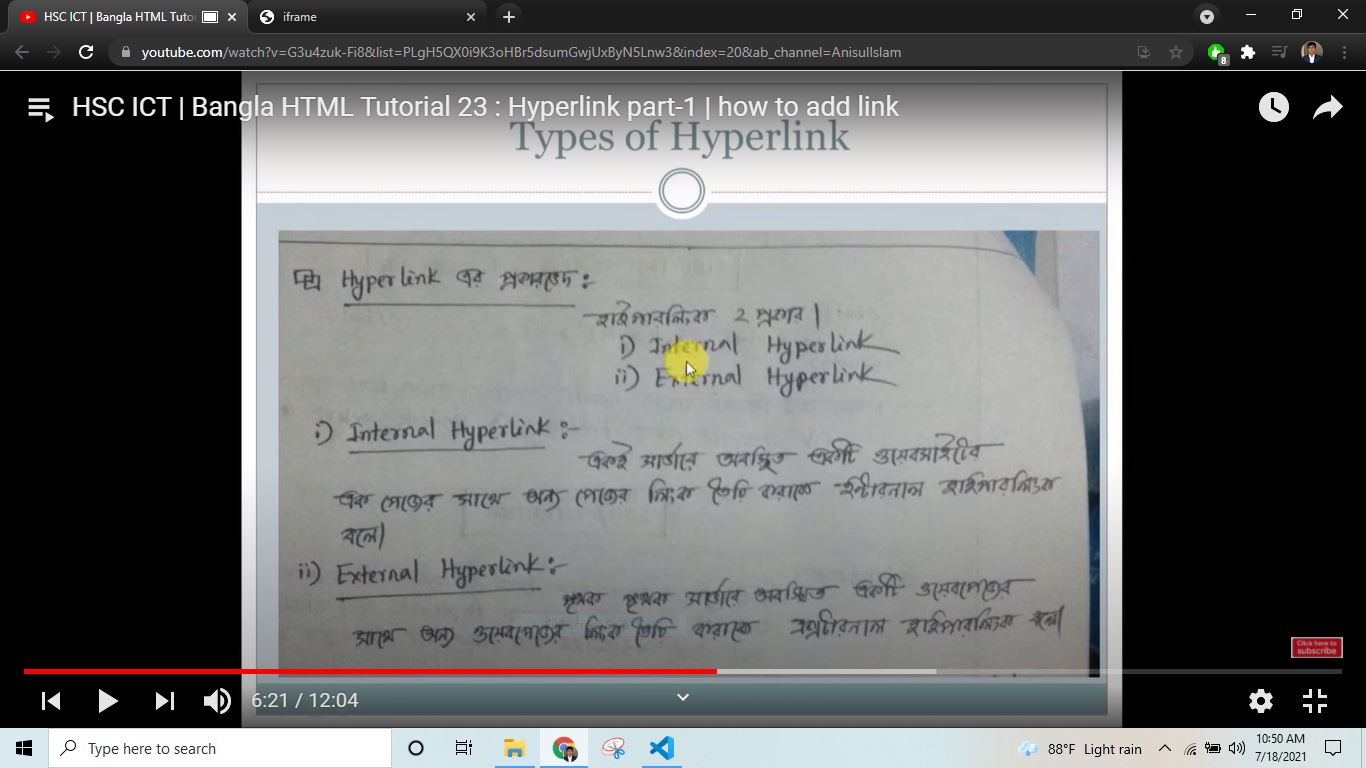 HSC ICT | Bangla HTML Tutor
iframe
youtube.com/watch?v=G3u4zuk-Fi8&list=PLgH5QX0i9K3oHBr5dsumGwjUxByN5Lnw3&index=20&ab_channel=AnisulIslam
8
HSC ICT | Bangla HTML Tutorial 23 : Hyperlink part-1 | how to add link
Types of Hyperlink
Hyperlink এর প্রকারভেদ :
হাইপারলিংক ২ প্রকার।
i) Internal Hyperlink
ii) External Hyperlink
i) Internal Hyperlink :-
একই সার্ভারে অবস্থিত একটি ওয়েবসাইটের
এক পেজের সাথে অন্য পেজের লিংক তৈরি করাকে ইন্টারনাল হাইপারলিংক
বলে।
ii) External Hyperlink :-
পৃথক পৃথক সার্ভারে অবস্থিত একটি ওয়েবপেজের
সাথে অন্য ওয়েবপেজের লিংক তৈরি করাকে এক্সটারনাল হাইপারলিংক বলে।
Click here to
subscribe
6:21 / 12:04
Type here to search
88°F Light rain
10:50 AM
7/18/2021